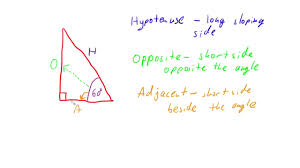 Hypotenuse - long sloping
side
H
O
Opposite - short side
opposite the angle
60°
A
Adjacent - short side
beside the angle